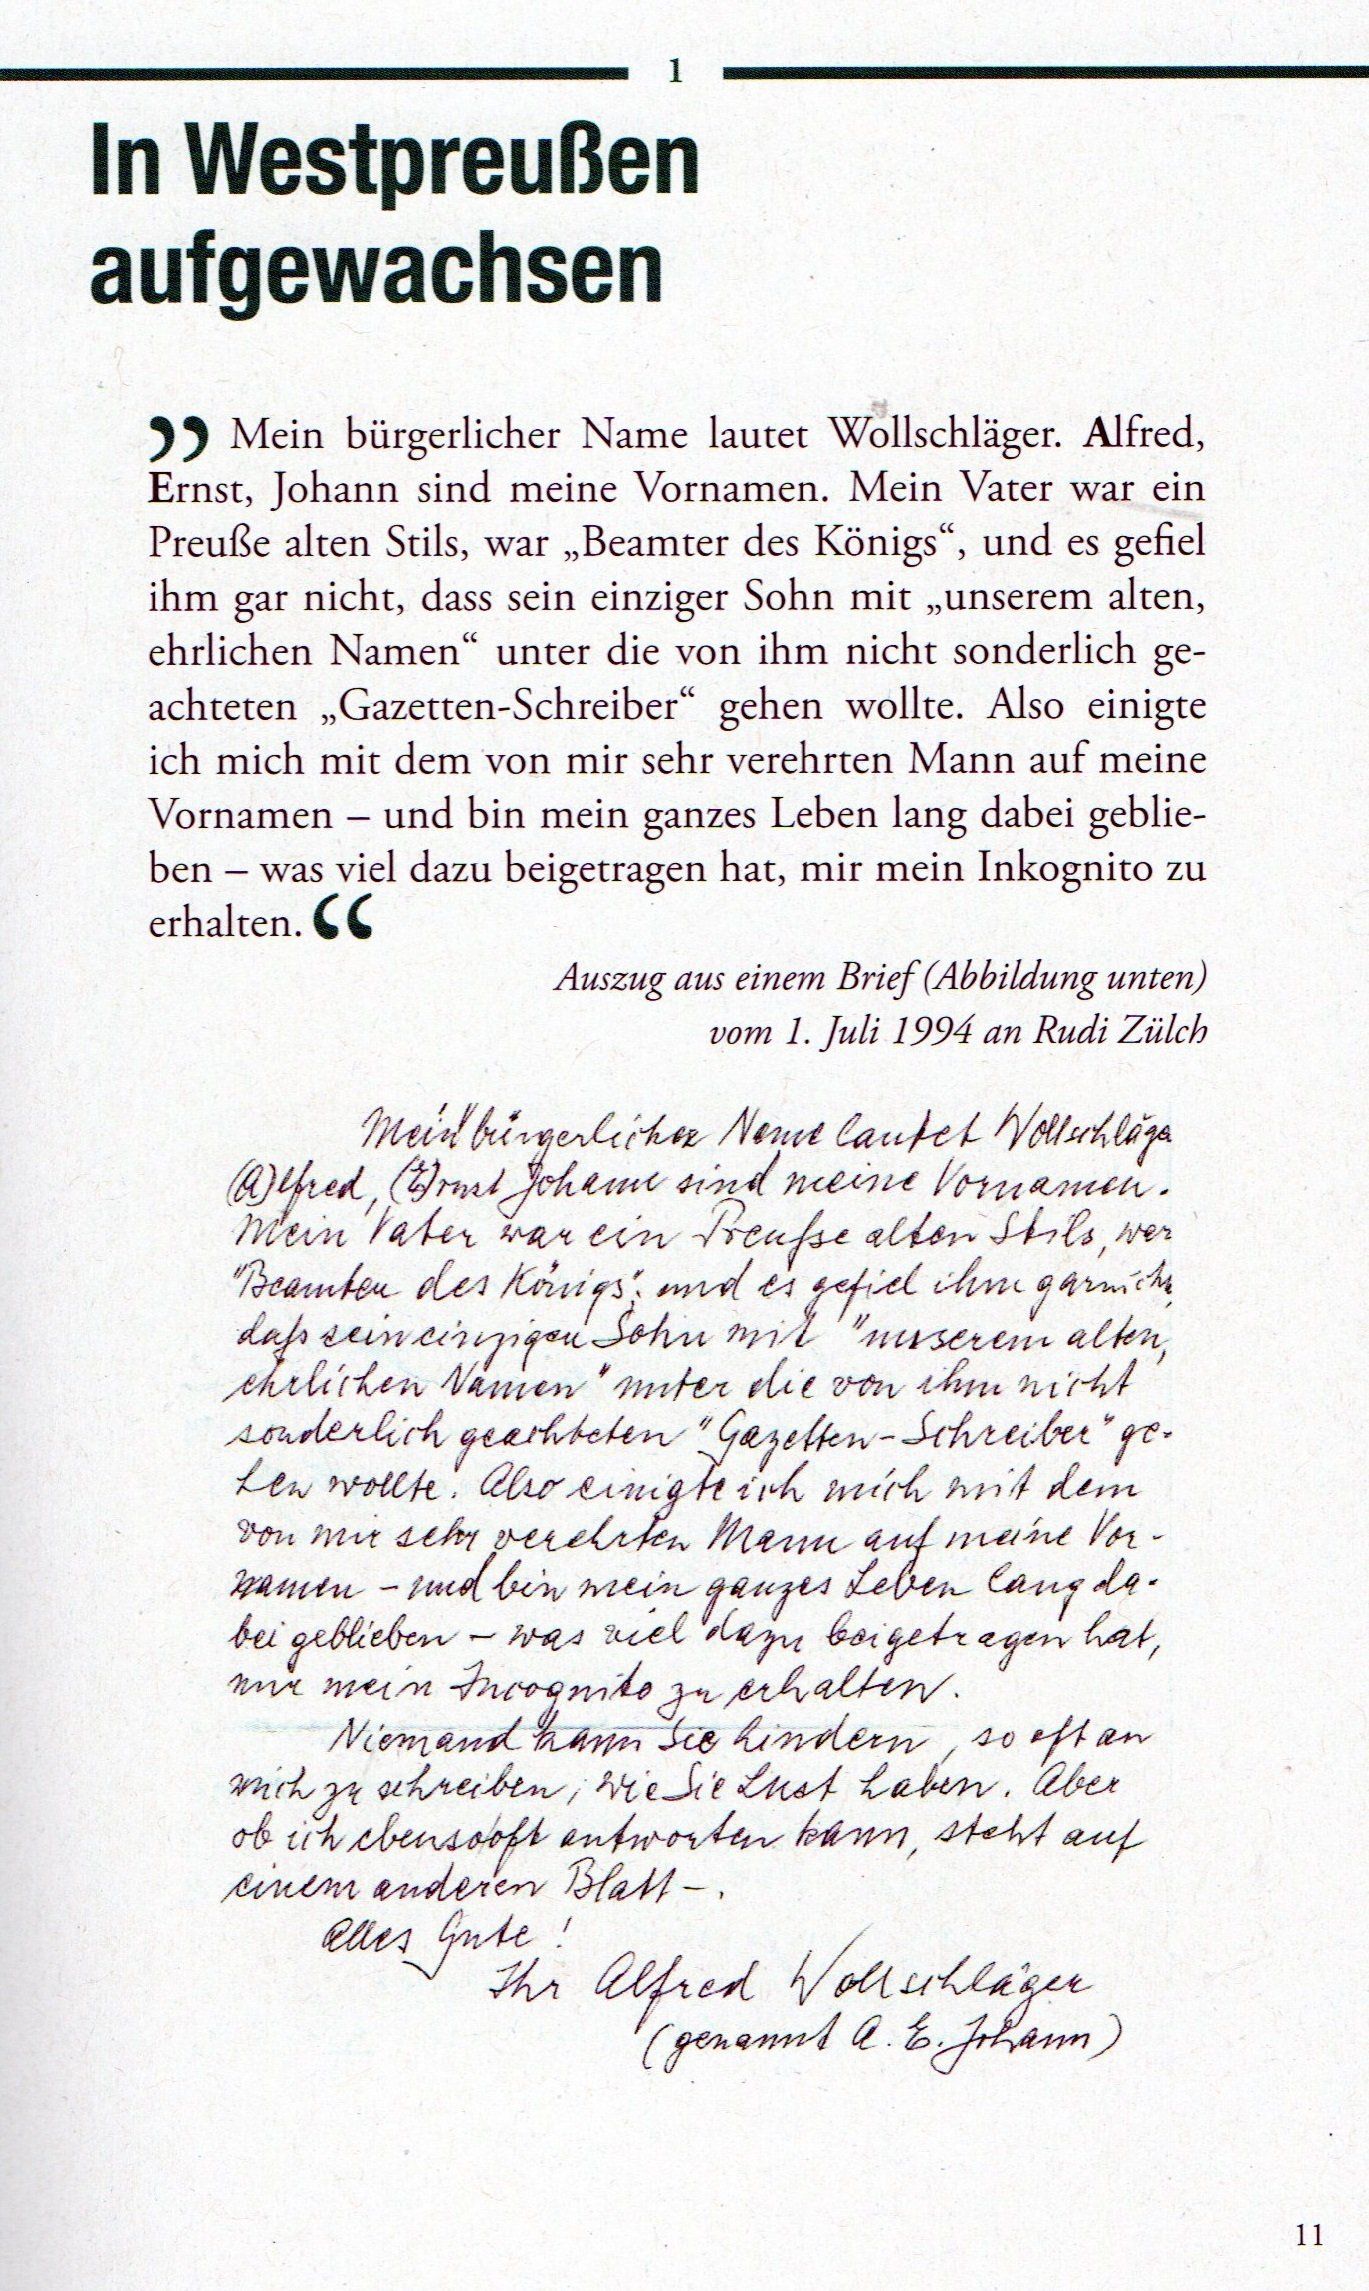 1
In Westpreußen
aufgewachsen
” Mein bürgerlicher Name lautet Wollschläger. Alfred,
Ernst, Johann sind meine Vornamen. Mein Vater war ein
Preuße alten Stils, war „Beamter des Königs“, und es gefiel
ihm gar nicht, dass sein einziger Sohn mit „unserem alten,
ehrlichen Namen“ unter die von ihm nicht sonderlich ge-
achteten „Gazetten-Schreiber“ gehen wollte. Also einigte
ich mich mit dem von mir sehr verehrten Mann auf meine
Vornamen – und bin mein ganzes Leben lang dabei geblie-
ben – was viel dazu beigetragen hat, mir mein Inkognito zu
erhalten. “
Auszug aus einem Brief (Abbildung unten)
vom 1. Juli 1994 an Rudi Zülch
Mein "bürgerlicher Name lautet Wollschläger
(A)lfred, (E)rnst Johann sind meine Vornamen.
Mein Vater war ein Preußse alten Stils, war
"Beamter des Königs", und es gefiel ihm garnicht,
daß sein einziger Sohn mit "unserem alten,
ehrlichen Namen" unter die von ihm nicht
sonderlich geachteten "Gazetten-Schreiber" ge-
hen wollte. Also einigte ich mich mit dem
von mir sehr verehrten Mann auf meine Vor-
namen – und bin mein ganzes Leben lang da-
bei geblieben – was viel dazu beigetragen hat,
mir mein Incognito zu erhalten.
Niemand kann Sie hindern, so oft an
mich zu schreiben, wie Sie Lust haben. Aber
ob ich ebensooft antworten kann, steht auf
einem anderen Blatt –.
Alles Gute!
Ihr Alfred Wollschläger
(genannt A. E. Johann)
11